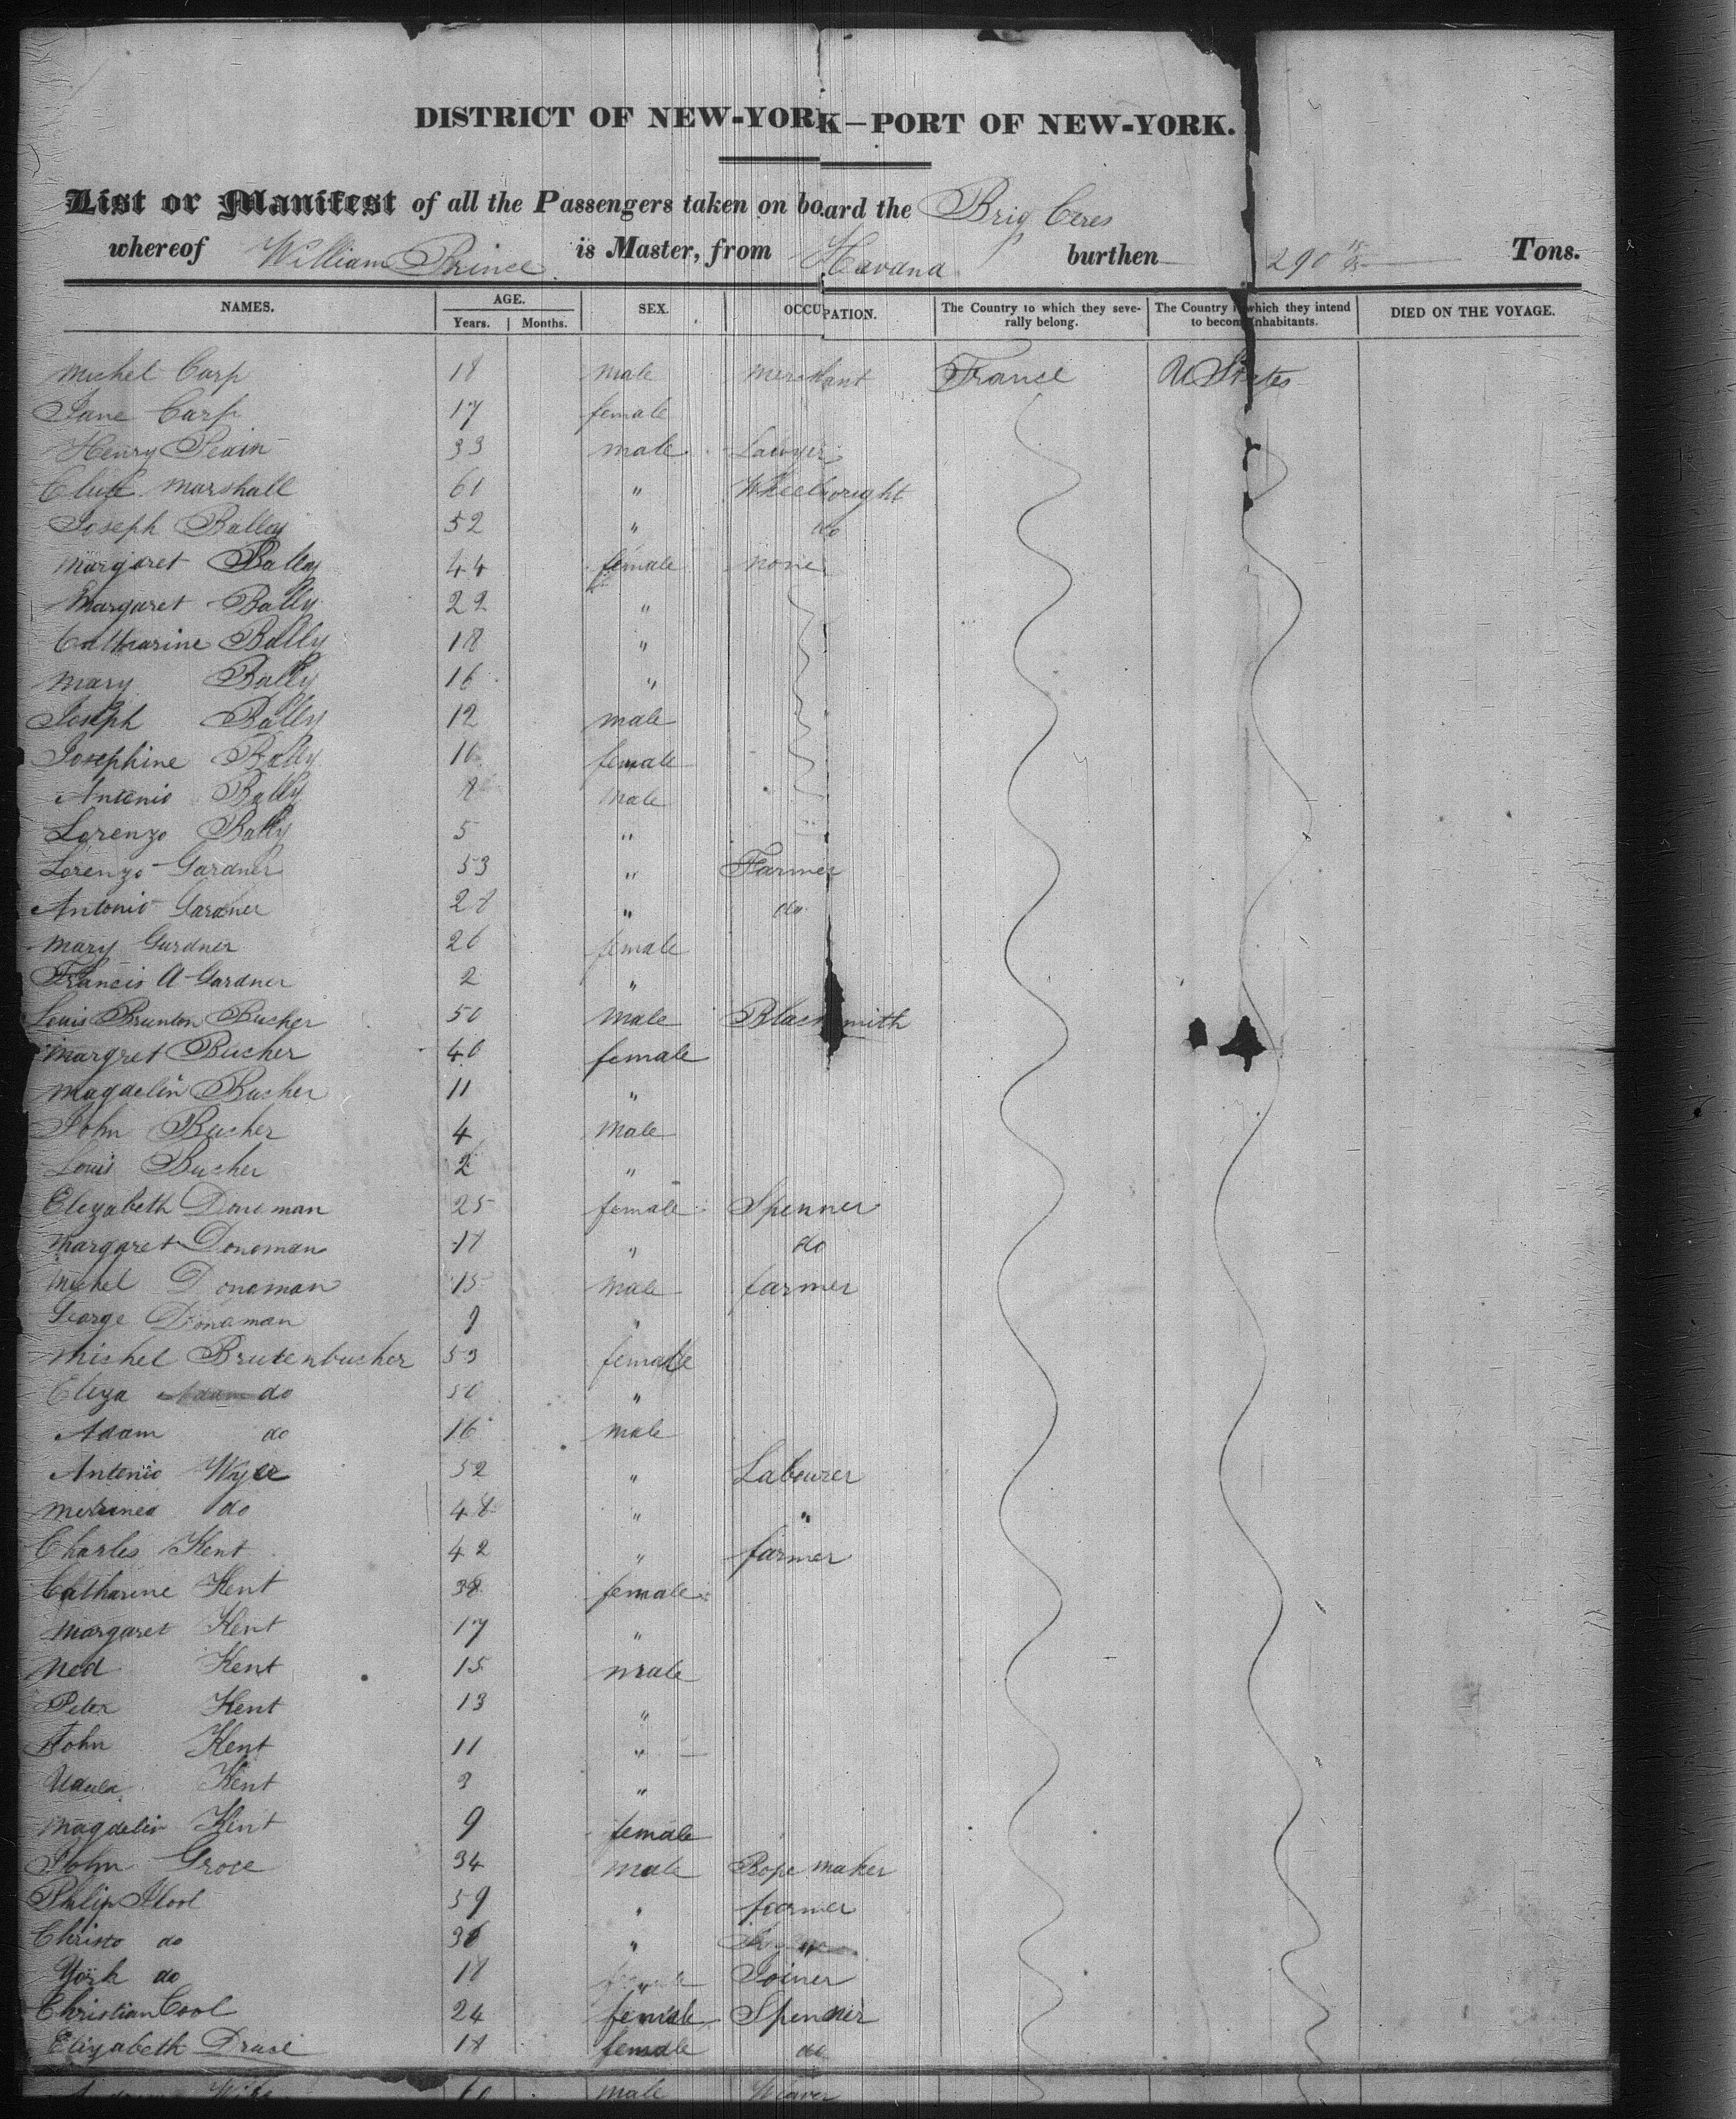 DISTRICT OF NEW-YORK—PORT OF NEW-YORK.
List or Manifest of all the Passengers taken on board the Brig Ceres
whereof William Prince is Master, from Havana burthen 290 15/95 Tons.
NAMES. AGE. Years. Months. SEX. OCCUPATION. The Country to which they severally belong. The Country in which they intend to become Inhabitants. DIED ON THE VOYAGE.
Michel Carp 18 male merchant France U States
Jane Carp 17 female
Henry 33 male Lawyer
Marshall 61 " Wheelwright
Joseph Balley 52 " do
Margaret Bally 44 female none
Margaret Bally 22 "
Catharine Bally 18 "
Mary Bally 16 "
Joseph Bally 12 male
Josephine Bally female
Antonio Bally 8 male
Lorenzo Bally 5 "
Lorenzo Gardner 53 " Farmer
Antonio Gardner 28 " do
Mary Gardner 26 female
Francis A Gardner 2 "
Louis Brunton Bucher 50 male Blacksmith
Margret Bucher 40 female
Magdelin Bucher 11 "
John Bucher 4 male
Louis Bucher 2 "
Elizabeth Doneman 25 female Spenner
Margaret Doneman 18 " do
Michel Donaman 15 male farmer
George Donaman 9 "
Michel Brutenbucher 53 female
Eliza do 50 "
Adam do 16 male
Antonio Wyer 52 " Labourer
do 48 " "
Charles Kent 42 " farmer
Catharine Kent 38 female
Margaret Kent 17 "
Ned Kent 15 male
Peter Kent 13 "
John Kent 11 "
Kent 3 "
Magdelin Kent 9 female
John Groce 34 male Rope maker
Philip Kool 59 " farmer
Christo do "
York do 18 " Joiner
Christian Cool 24 female Spenner
Elizabeth Druse 18 female do
male Weaver